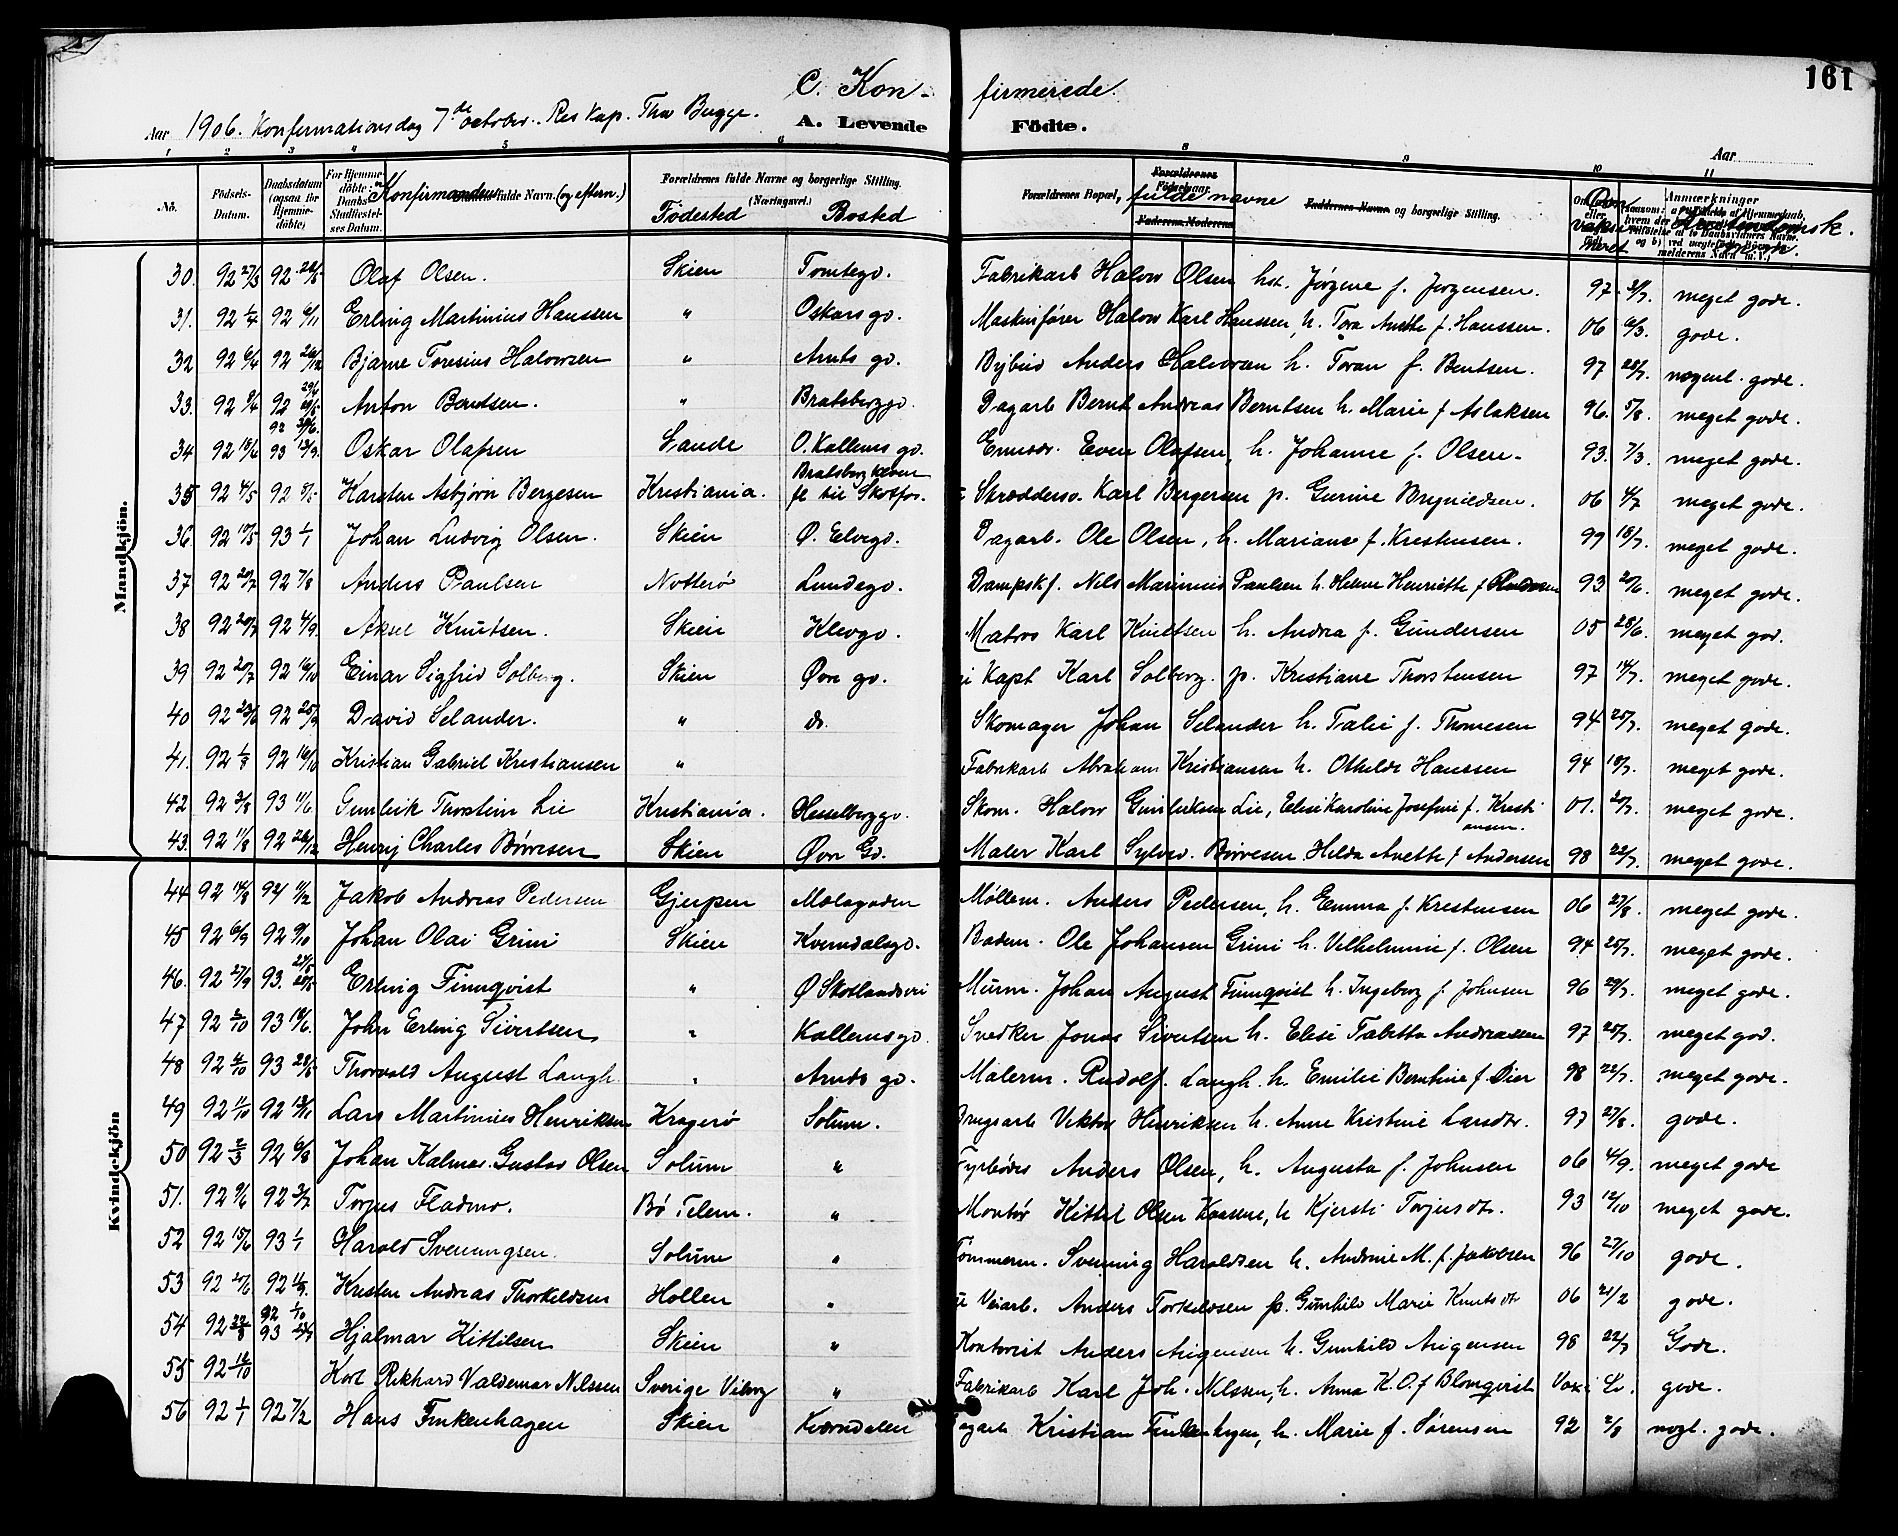 161
C. Kon- firmerede
Aar 1906. Konfirmationsdag 7de october. Res Kap. Thv Bugge. A. Levende Födte. Aar
1 2 3 4 5 6 8 9 10 11
Nö. Födsels-Datum. Daabsdatum (ogsaa for Hjemmedöbte) For Hjemmedöbte: Daabs Stadfæstelses Datum. Konfirmandens fulde Navn. (og eftern.) Forældrenes fulde Navne og borgerlige Stilling. (Næringsvei.) Födested Bosted Forældrenes Bopæl, fulde navne Faddernes Navne og borgerlige Stilling. Anmærkninger Kristendomsk.
Mandkjön.
Kvindekjön
30. 92 27/3 92 Olaf Olsen. Skien Tomtego. Fabrikarb Halvor Olsen hst. Jørgine f. Jørgensen. 97 meget gode.
31. 92 1/4 92 6/11 Erling Martinius Hanssen " Oskars gd. Maskinfører Halvor Karl Hanssen, h. Tora Anette f. Hanssen. 06 6/3. gode.
32 92 6/4 92 26/12 Bjarne Toresius Halvorsen " Arnts gd. Bybud Anders Halvorsen h. Toran f. Bentsen. 97 28/7. nogenl. gode.
33. 92 9/4 92 Anton Berntsen. " Bratsberggd. Dagarb Bernt Andreas Berntsen h. Marie f Aslaksen 96. 5/8. meget gode.
34 92 18/4 93 Oskar Olafsen Sande O. Kallems gd. Even Olafsen, h. Johanne f. Olsen. 93. 7/3. meget gode.
35 92 4/5 92 Karsten Asbjørn Bergesen Kristiania. Bratsberg kleven fl til Skotfos. Skræddersv. Karl Bergersen p. Gurine Brynildsen. 06 4/7 meget gode.
36 92 10/5 93 1/1 Johan Ludvig Olsen. Skien Ø. Elvego. Dagarb. Ole Olsen, h. Mariane f. Kristensen. 99 18/7. meget gode.
37 92 20/7 92 7/8 Anders Paulsen Nøtterø Lundego. Dampskf. Nils Marinius Paulsen h. Helene Henriette f 93 20/6. meget gode.
38 92 20/7 92 4/9. Aksel Knutsen. Skien Klevgo. Matros Karl Knutsen h. Andrea f. Gundersen 05 28/6. meget god.
39 92 20/7 92 16/10 Einar Sigfrid Solberg. Skien Øvre gd. Kapt Karl Solberg. p. Kristiane Thorstensen 97 14/7. meget gode.
40 92 23/6 92 25/9 David Selander. " do. Skomager Johan Selander h. Talie f. Thomesen 94 25/7. meget gode.
41. 92 1/8 92 16/10 Kristian Gabriel Kristiansen " Fabrikarb Abraham Kristiansen h. Othilde Hanssen 94 18/7. meget gode.
42 92 3/8 93 11/6 Gunleik Thorstein Lie Kristiania. Hesselberggd. Skom. Halvor Gunleiksen Lie, Elise Karoline Josefine f. Kristiansen. 01. 20/7. meget gode.
43. 92 11/8 92 26/12 Henrij Charles Børresen Skien Øvre Gd. Maler Karl Sylves. Børresen Hilda Anette f Andersen 98 22/7. meget gode.
44 92 14/8 94 11/2 Jakob Andreas Pedersen Gjerpen Mælagaden Møllem. Anders Pedersen, h. Emma f. Kristensen 06 27/8. meget gode.
45 92 6/9 92 9/10 Johan Olai Grini Skien Kverndalsgd. Badem. Ole Johansen Grini h. Vilhelmine f. Olsen 94 25/7. meget gode.
46. 92 27/9 93. Erling Finnqvist " Ø Skotlandsvei Murm. Johan August Finnqvist h. Ingeborg f. Johnsen 96 29/7. meget gode.
47 92 2/10 93 18/6. John Erling Sivertsen " Kallemsgd. Snedker Jonas Sivertsen h. Elise Tabitta Andreassen 97 28/7. meget god.
48 92 4/10 93 28/5 Thorvald August Langh. " Arnts gd. Malerm. Rudolf. Langh. h. Emilie Berntine f. Dier 98 22/7. meget gode.
49 92 11/10 92 13/11 Lars Martinius Henriksen Kragerø Solum. Brugsarb Viktor Henriksen h. Anne Kristine Larsdtr. 97 27/8. gode.
50 92 2/3 92 6/8 Johan Kalmar. Gustav Olsen Solum " Fyrbøder Anders Olsen, h. Augusta f. Johnsen 06 4/9. meget gode
51. 92 9/6 92 3/7 Torjus Fladmo. Bø Telem. " Montør Kittel Olsen Kaasene, h Kjersti Torjusdtr. 93 12/10 meget gode.
52 92 15/6 93 1/1 Harald Svenungsen. Solum " Tømmerm. Svenning Haroldsen h. Andrine M. f. Jakobsen 96 27/10 gode.
53 92 92 11/9. Kristen Andreas Thorkildsen Hollen " Veiarb. Anders Torkildsen p. Gunhild Marie Knutsdtr 06 21/2 gode.
54 92 22/8 92 1/10 93 Hjalmar Kittilsen Skien " Kontorist Anders Augensen h. Gunhild Augensen 98 22/7 Gode.
55 92 16/10 Karl Rikhard Valdemar Nilssen Sverige Viborg " Fabrikarb Karl Joh. Nilssen, h. Anna K. O. f Blomqvist gode.
56 92 1/1 92 7/2 Hans Finkenhagen Skien Kverndalen Dagarb Kristian Finkenhagen, h. Marie f. Sørensen 92 2/8 nogl. gode.